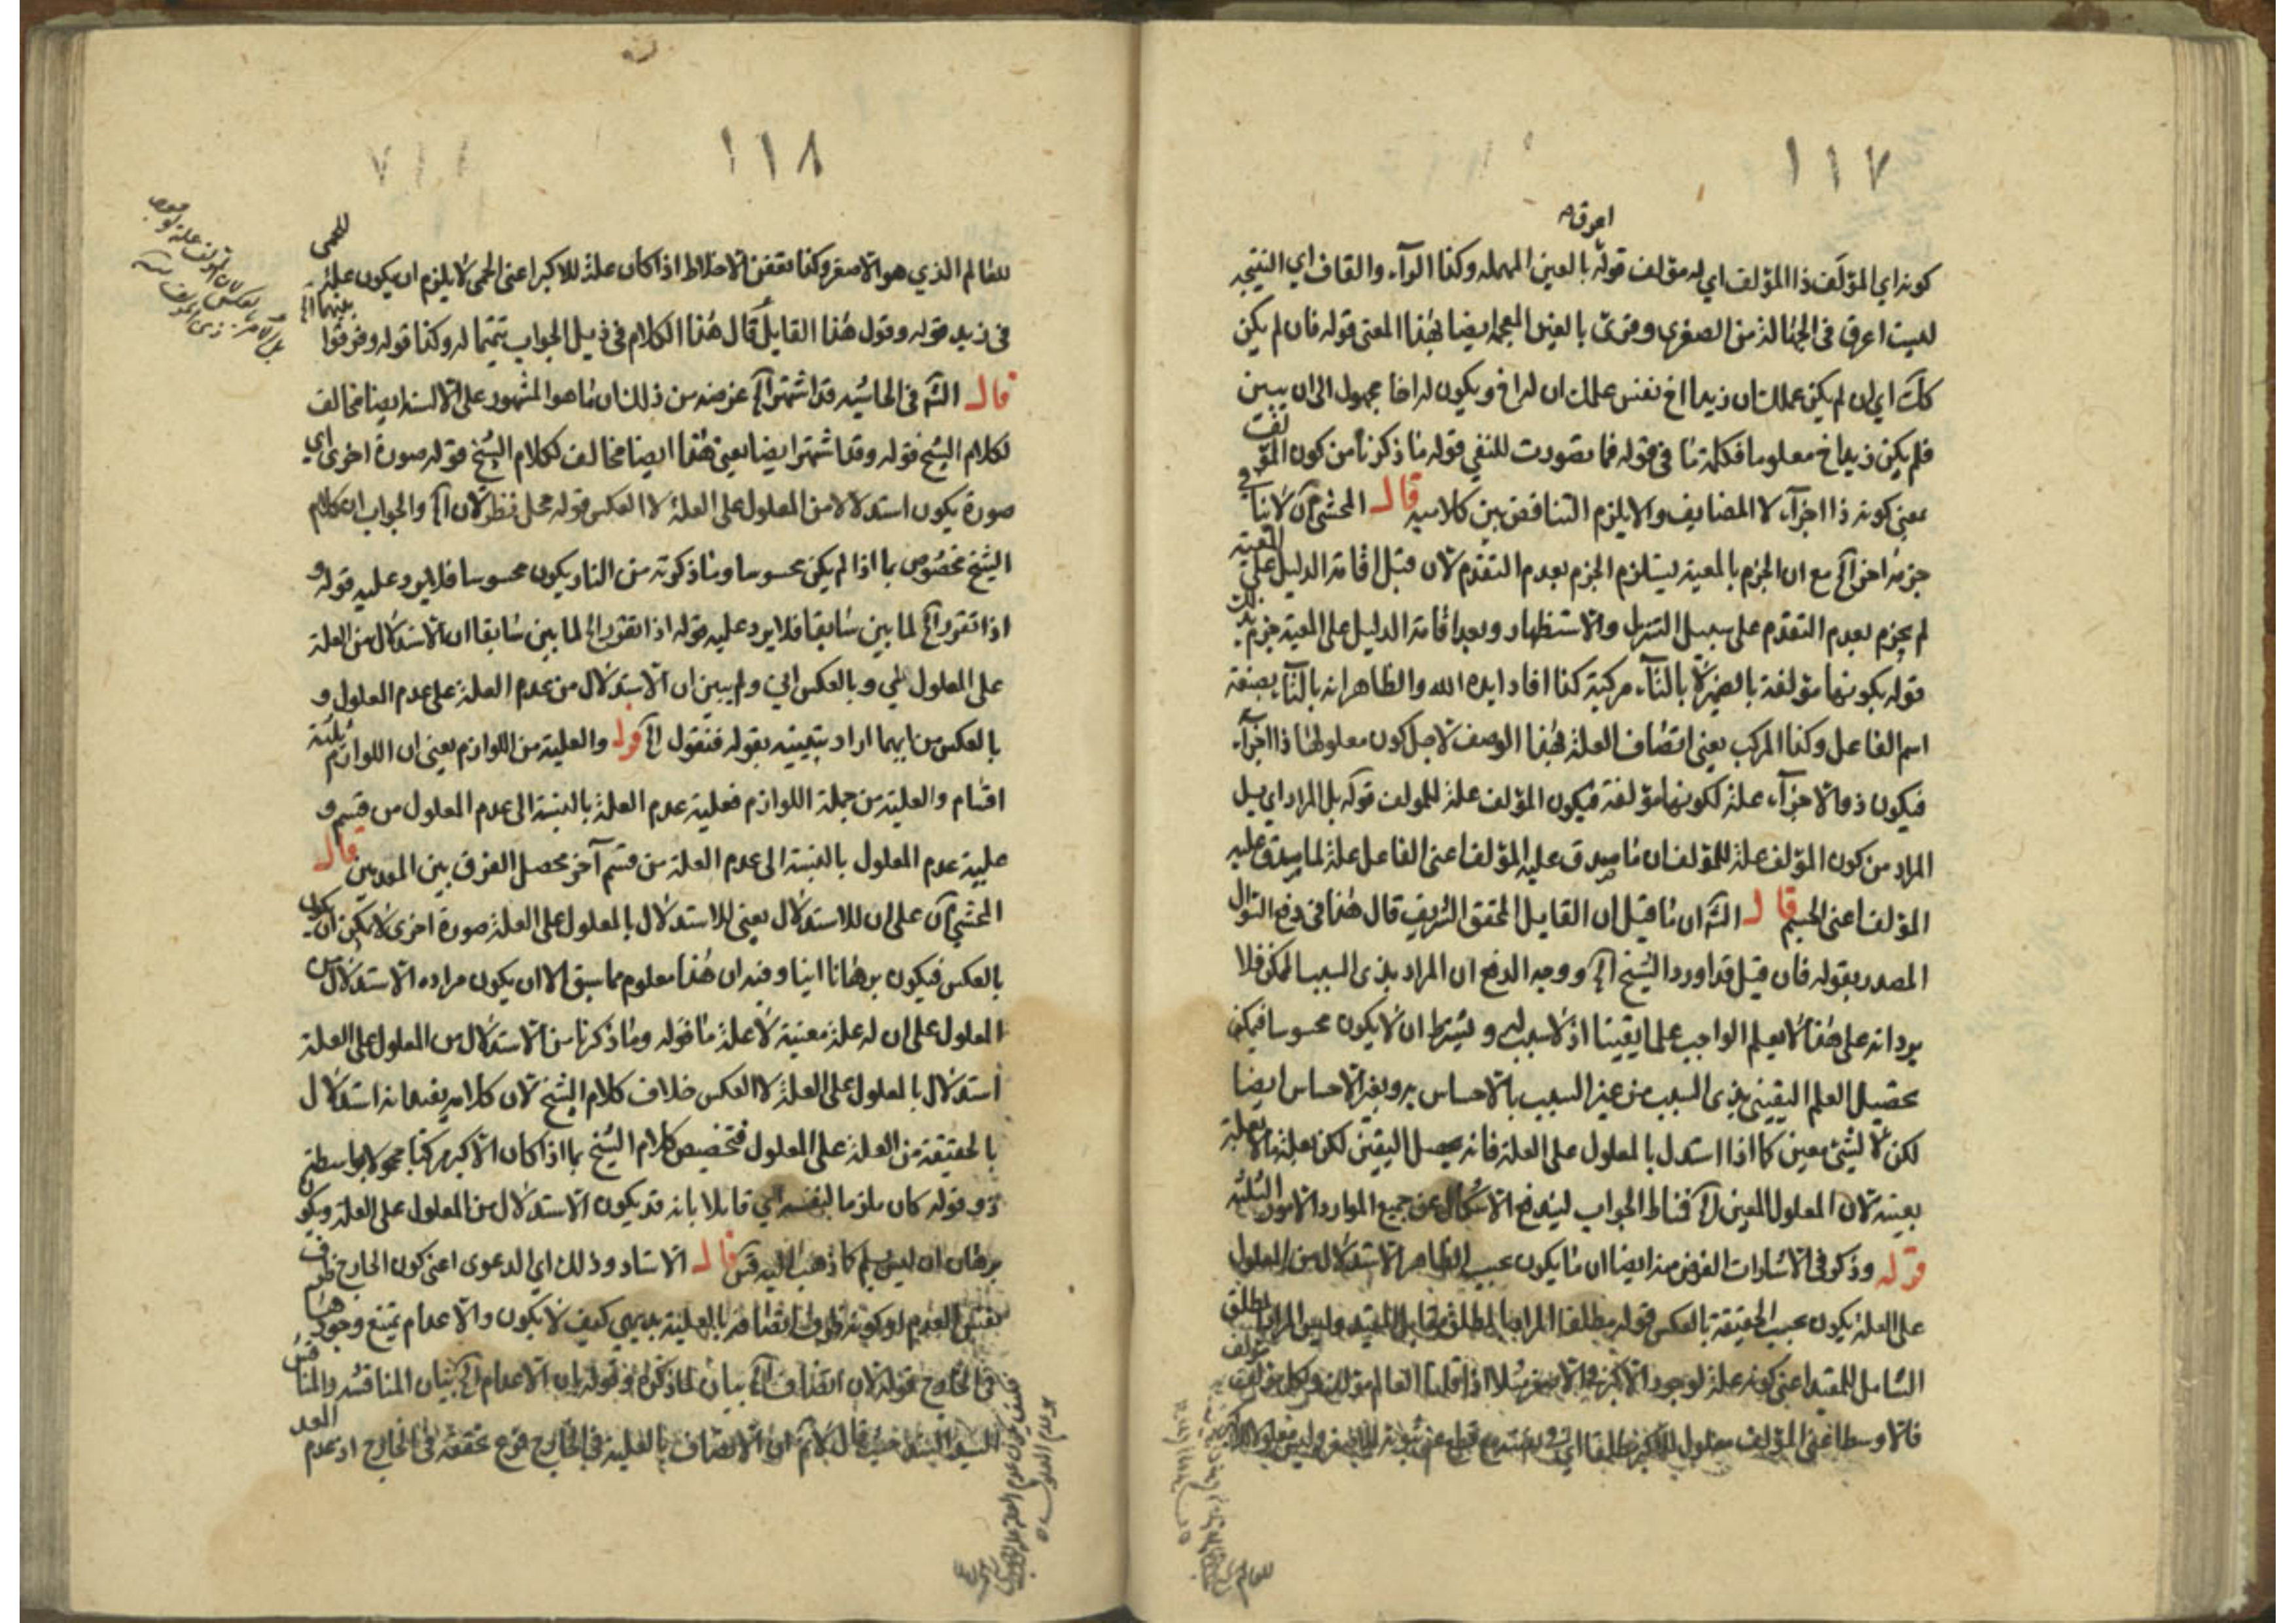 ١١٧
اعرق
كونه اي المؤلَف ذا المؤلف اي له مؤلف قوله بالعين المهمله وكذا الراء والقاف اي النتيجة
ليست اعرق في الجهالة من الصغرى وقرئ بالغين المعجمة ايضا بهذا المعنى قوله فان لم يكن
كك اي ان لم يكن عملك ان زيدا اخ نفس علمك ان له اخ ويكون له اخا مجهول الى ان يبين
فلم يكن زيد اخ معلوما فكلمة ما في قوله فما تصورت للنفي قوله ما ذكرنا من كون المؤلف
بمعنى كونه ذا اجزاء لا المضايف والا يلزم التناقض بين كلاميه قال المحشي لان لا ينافي
جزمه اخرا الخ مع ان الجزم بالمعية يستلزم الجزم بعدم التقدم لان قبل اقامة الدليل على المعية
لم يجزم بعدم التقدم على سبيل التنزل والاستظهار وبعد اقامة الدليل على المعية جزم بذلك
قوله بكونها مؤلفة بالضم لا بالتاء مركبة كذا افاد ايده الله والظاهر انه بالتاء بصفة
اسم الفاعل وكذا المركب يعني اتصاف العلة بهذا الوصف لاجل كون معلولها ذا اجزاء
فيكون ذو الاجزاء علة لكونها مؤلفة فيكون المؤلف علة للمولف قوله بل المراد اي بل
المراد من كون المؤلف علة للمؤلف ان ما صدق عليه المؤلف اعني الفاعل علة لما صدق عليه
المؤلف اعني الجسم قال الش ان ما قيل ان القايل المحقق الشريف قال هذا في دفع السوال
المصدر بقوله فان قيل قد اورد الشيخ الخ ووجه الدفع ان المراد بذي السبب الممكن فلا
يرد انه على هذا لا يعلم الواجب علما يقينا اذ لا سبب له ويشترط ان لا يكون محسوسا فيمكن
تحصيل العلم اليقيني بذي السبب من غير السبب بالاحساس به وبغير الاحساس ايضا
لكن لا لشئ معين كما اذا استدل بالمعلول على العلة فانه يحصل اليقين لكن بعلة ما لا بعلة
بعينه لان المعلول المعين الخ فمناط الجواب ليندفع الاشكال عن جميع الموارد الامور الثلثة
قوله وذكر في الاشارات الغرض منه ايضا ان ما يكون بحسب الظاهر الاستدلال من المعلول
على العلة يكون بحسب الحقيقة بالعكس قوله مطلقا المراد بالمطلق مقابل المقيد وليس المراد المطلق
الشامل للمقيد اعني كونه علة لوجود الاكبر في الاصغر مثلا اذا قلنا العالم مؤلف وكل مؤلف مؤلف
فالاوسط اعني المؤلف معلول للاكبر مطلقا
١١٨
للعالم الذي هو الاصغر وكذا تعفن الاخلاط اذا كان علة للاكبر اعني الحمى لا يلزم ان يكون علة للحمى
في زيد قوله وقول هذا القايل قال هذا الكلام في ذيل الجواب تتميما له وكذا قوله وفرقوا بينهما الخ
قال الش في الحاشيه قد اشتهر الخ غرضه من ذلك ان ما هو المشهور على الالسنة ايضا مخالف
لكلام الشيخ قوله وقد اشتهر ايضا يعني هذا ايضا مخالف لكلام الشيخ قوله صورة اخرى اي
صورة يكون استدلالا من المعلول على العلة لا العكس قوله محل نظر لان الخ والجواب ان كلام
الشيخ مخصوص بما اذا لم يكن محسوسا وما ذكرته من النار يكون محسوسا فلا يرد عليه قوله و
اذا تقرر الخ لما بين سابقا فلا يرد عليه قوله اذا تقرر الخ لما بين سابقا ان الاستدلال من العلة
على المعلول لمي وبالعكس اني ولم يبين ان الاستدلال من عدم العلة على عدم المعلول و
بالعكس من ايهما اراد تبيينه بقوله فنقول الخ قوله والعلية من اللوازم يعني ان اللوازم ثلثة
اقسام والعلية من جملة اللوازم فعلية عدم العلة بالنسبة الى عدم المعلول من قسم و
علية عدم المعلول بالنسبة الى عدم العلة من قسم آخر يحصل الفرق بين العدمين قال
المحشي لان على ان للاستدلال يعني للاستدلال بالمعلول على العلة صورة اخرى لا يمكن ان يكون
بالعكس فيكون برهانا انيا وفيه ان هذا معلوم مما سبق الا ان يكون مراده الاستدلال من
المعلول على ان له علة معينة لا علة ما قوله وما ذكرنا من الاستدلال من المعلول على العلة
استدلال بالمعلول على العلة لا العكس خلاف كلام الشيخ لان كلامه يفيد انه استدلال
بالحقيقة من العلة على المعلول فتخصيص كلام الشيخ بما اذا كان الاكبر مركبا محمولا بواسطة
ذو قوله كان ملزما لنفسه اي قايلا بانه قد يكون الاستدلال من المعلول على العلة ويكون
برهان ان ليس بلم كما ذهب اليه قال الاستاد وذلك اي الدعوى اعني كون الخارج ظرف
لنفس العدم او كونه ظرف اتصافه بالعلية بديهي كيف لا يكون والاعدام يمتنع وجودها
في الخارج قوله لان اتصاف الخ بيان لما ذكره وقوله ان الاعدام الخ بيان المناقشه والمناقش
السيد السند حيث قال لانم ان الاتصاف بالعلية في الخارج فرع تحققه في الخارج اذ عدم العلة